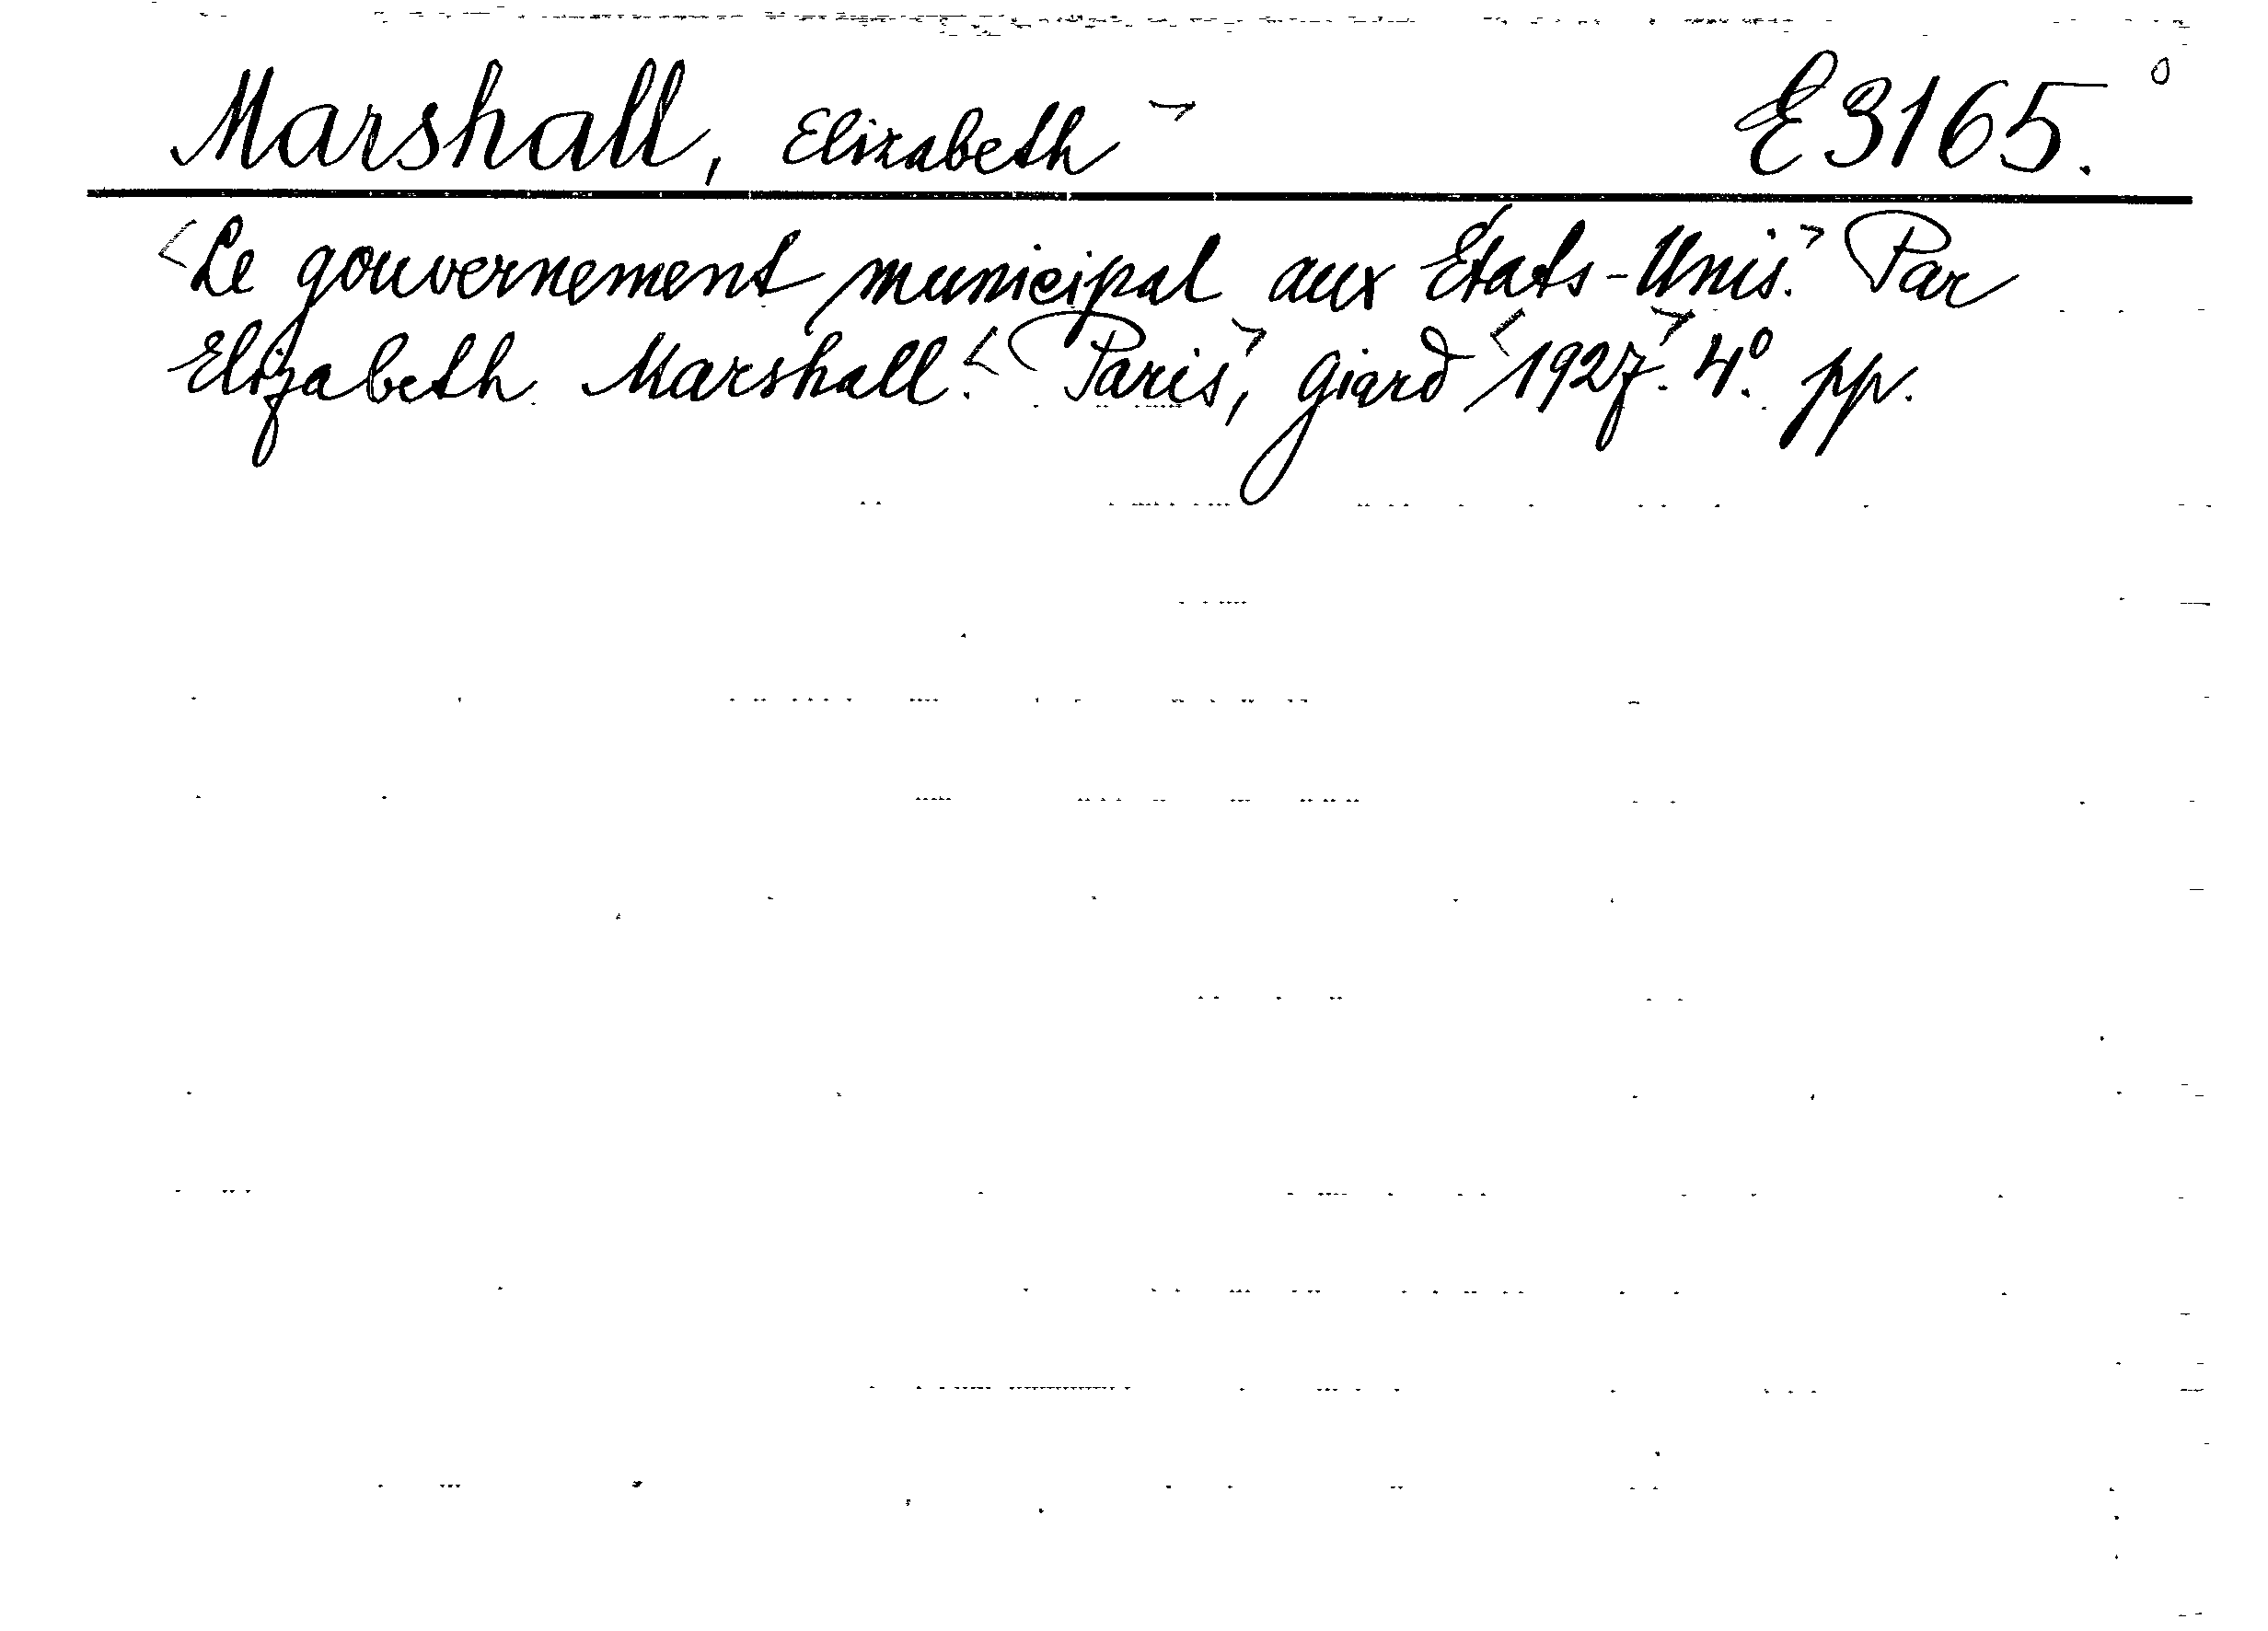 Marshall, Elizabeth ¬ E 3165.
<Le gouvernement municipal aux États-Unis.> Par
Elizabeth Marshall. <Paris>, Giard <1927>. 4° pp.